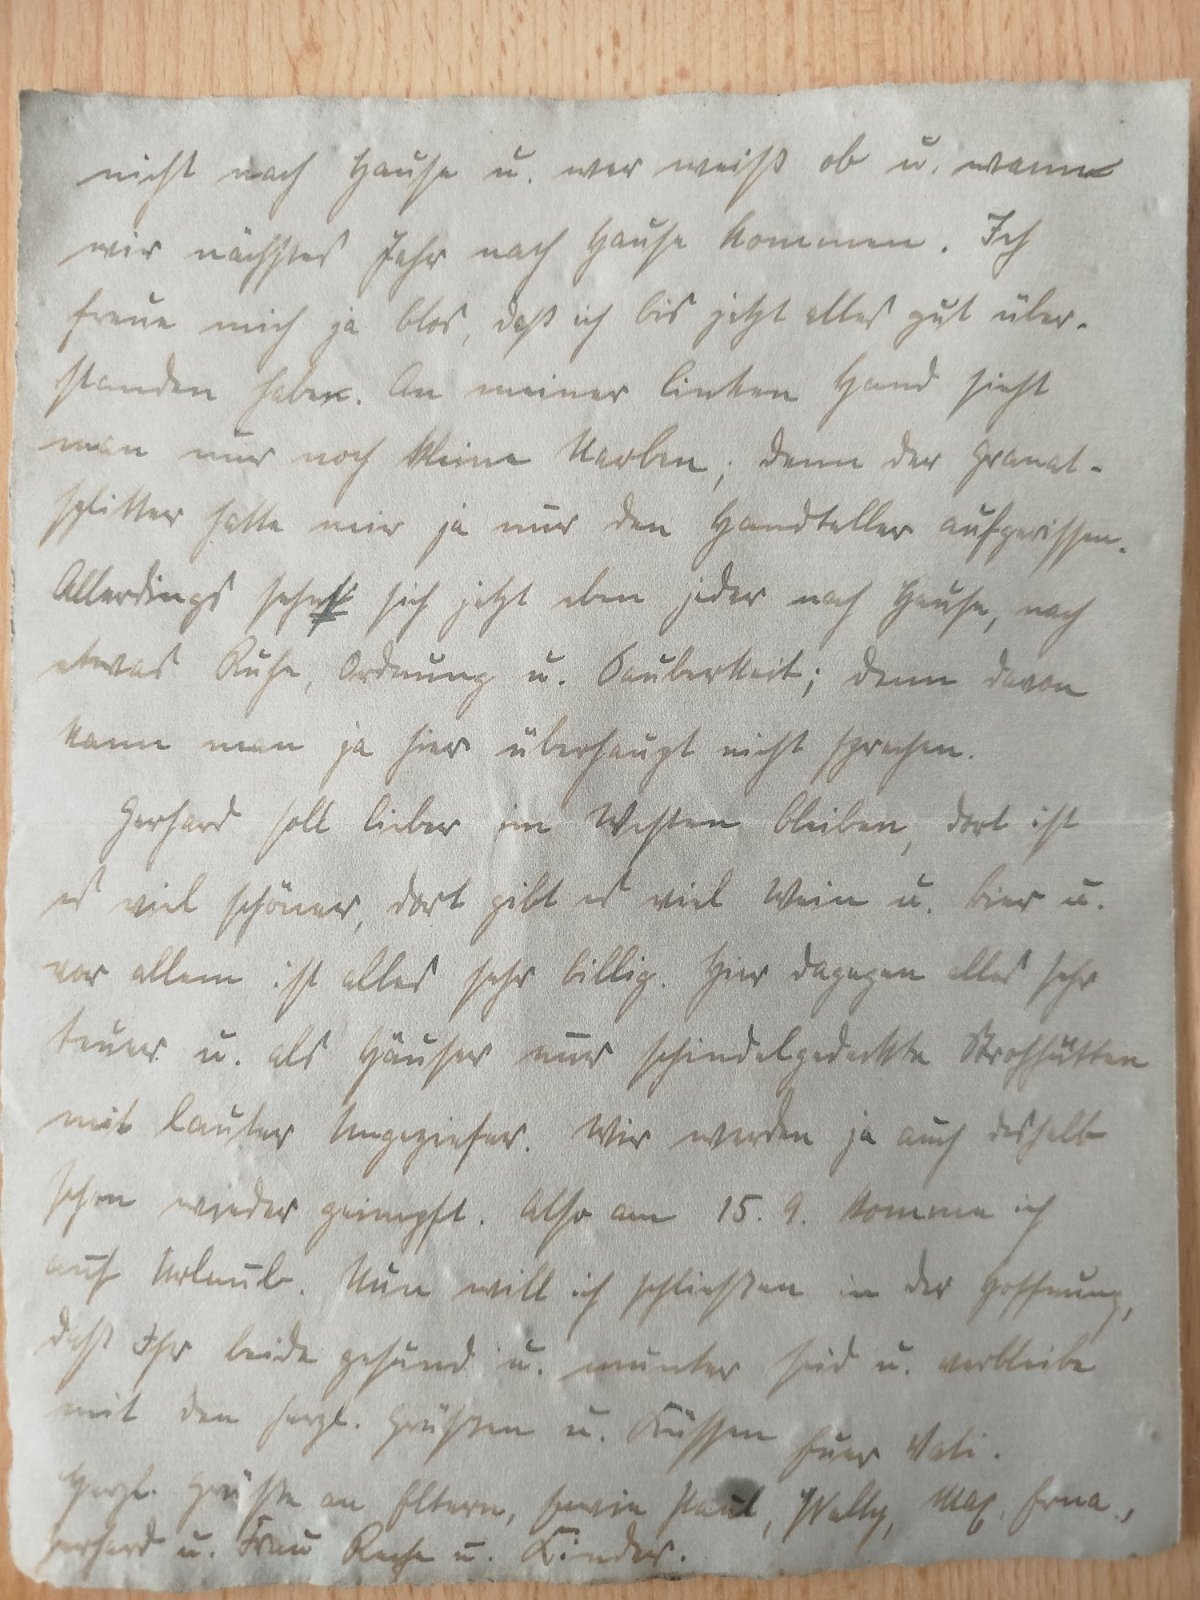 nicht nach Hause u. wer weiß ob u. wann
wir nächstes Jahr nach Hause kommen. Ich
freue mich ja blos, daß ich bis jetzt alles gut über-
standen habe. An meiner linken Hand sieht
man nur noch kleine Narben; denn der Granat-
splitter hatte mir ja nur den Handteller aufgerissen.
Allerdings sehnt sich jetzt eben jeder nach Hause, nach
etwas Ruhe, Ordnung u. Sauberkeit; denn davon
kann man ja hier überhaupt nicht sprechen.
Gerhard soll lieber im Westen bleiben, dort ist
es viel schöner, dort gibt es viel Wein u. Bier u.
vor allem ist alles sehr billig. Hier dagegen alles sehr
teuer u. als Häuser nur schindelgedeckte Strohhütten
mit lauter Ungeziefer. Wir werden ja auch deshalb
schon wieder geimpft. Also am 15. 9. komme ich
auf Urlaub. Nun will ich schließen in der Hoffnung,
daß Ihr beide gesund u. munter seid u. verbleibe
mit den herzl. Grüßen u. Küssen Euer Vati.
Herzl. Grüße an Eltern, sowie Paul, Wally, Max, Erna,
Gerhard u. Frau u. Kinder.